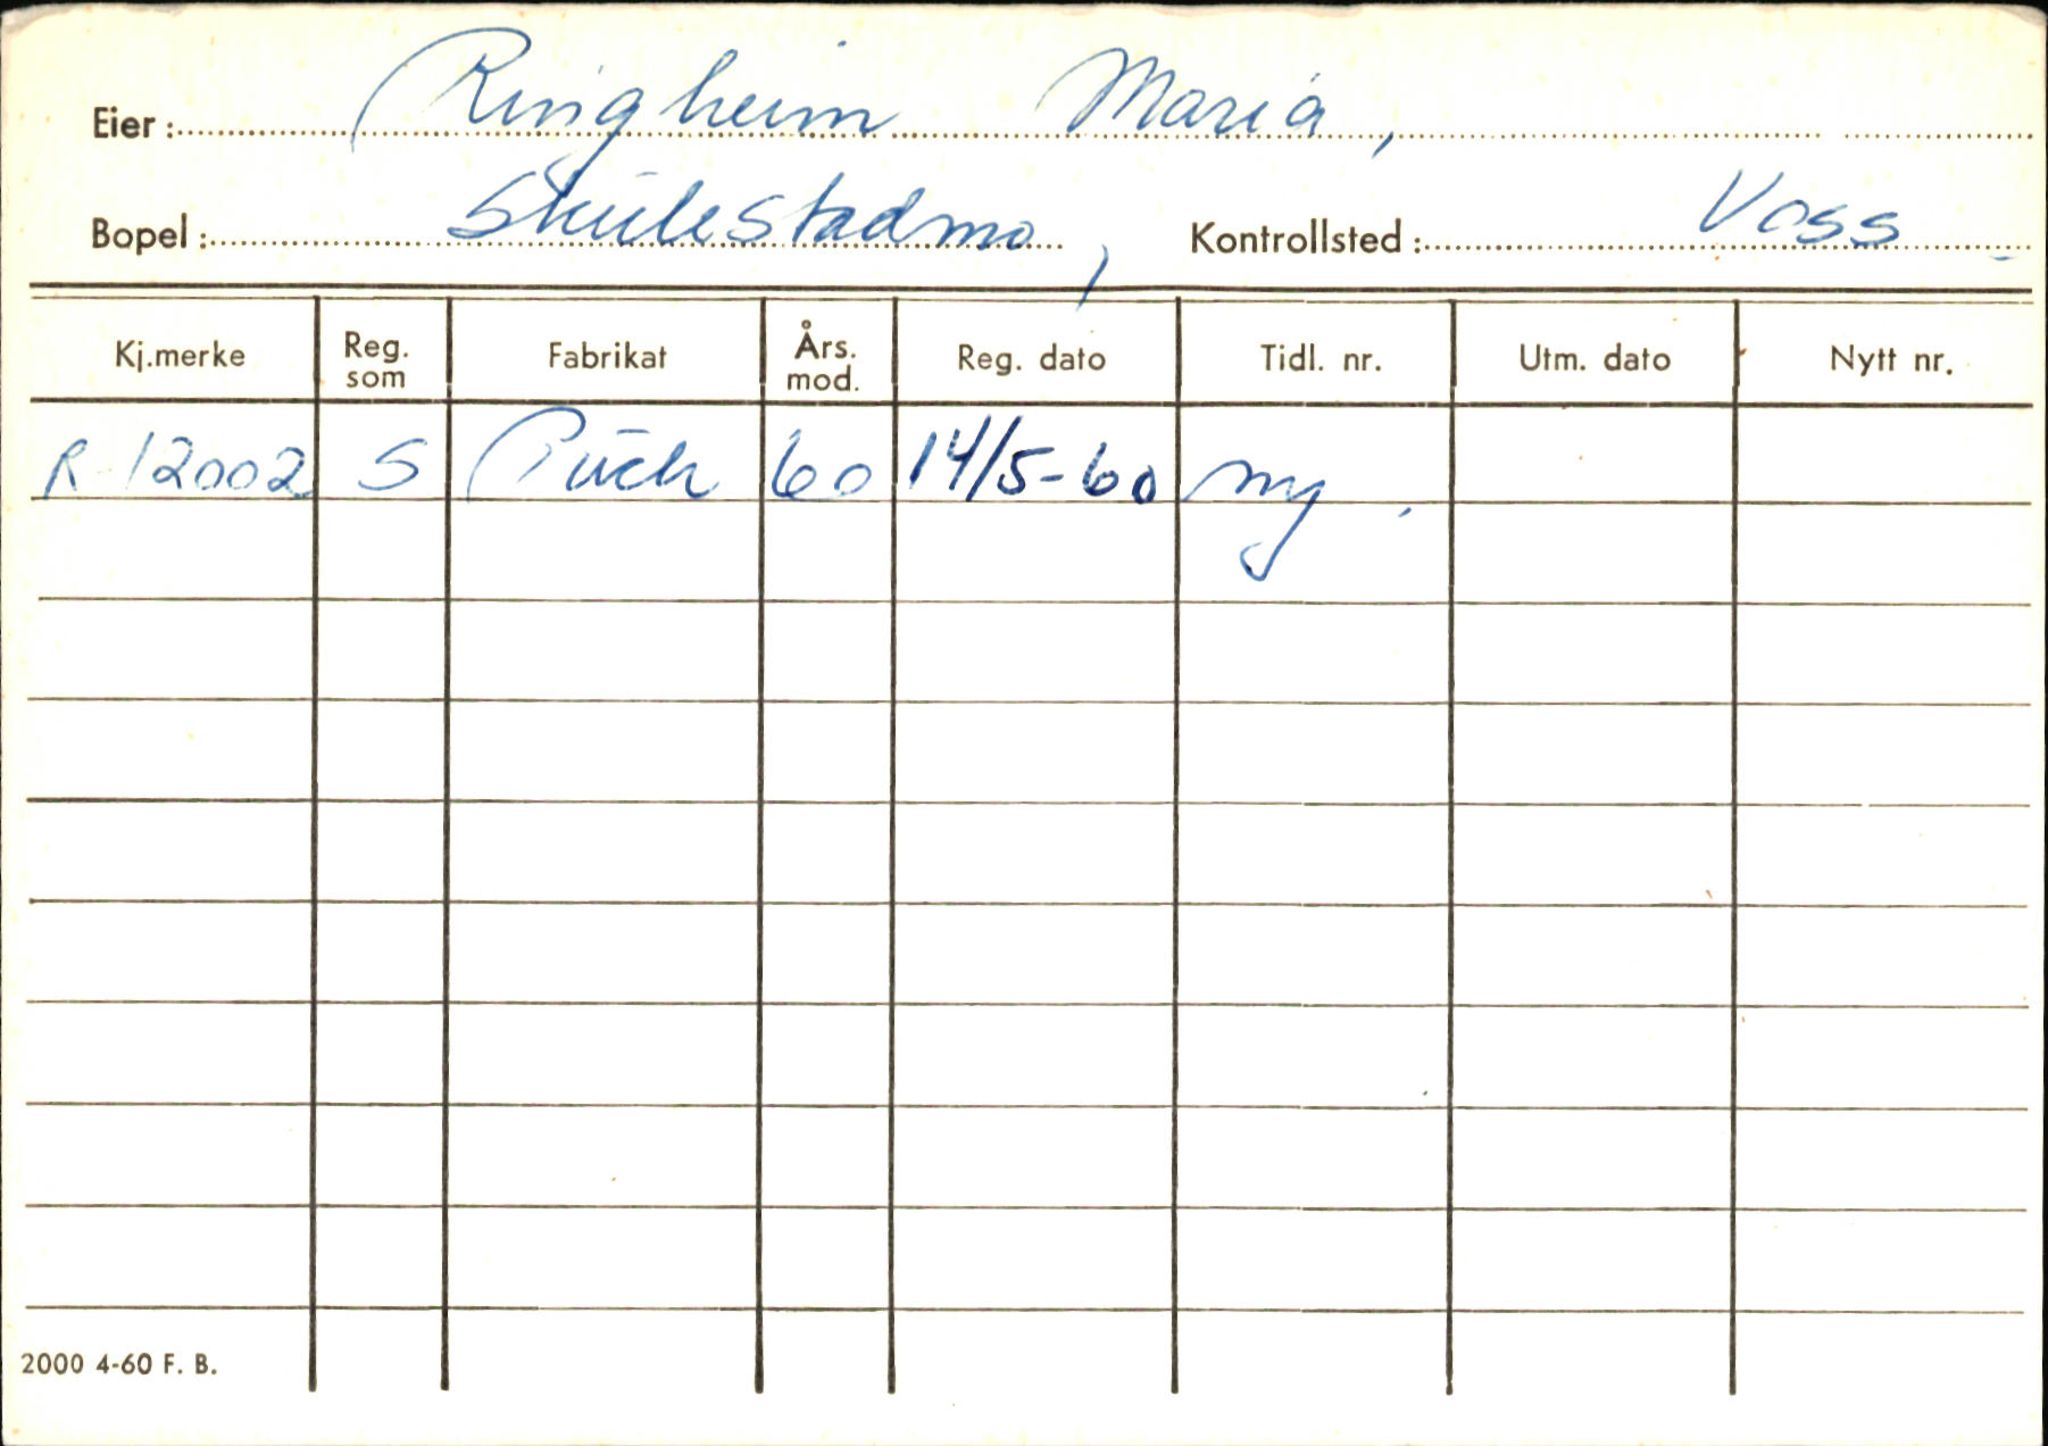 Eier: Ringheim Maria,
Bopel: Skulestadmo, Kontrollsted: Voss
Kj.merke Reg. som Fabrikat Års. mod. Reg. dato Tidl. nr. Utm. dato Nytt nr.
R-12002 S Puch 60 14/5-60 ny.
2000 4-60 F. B.